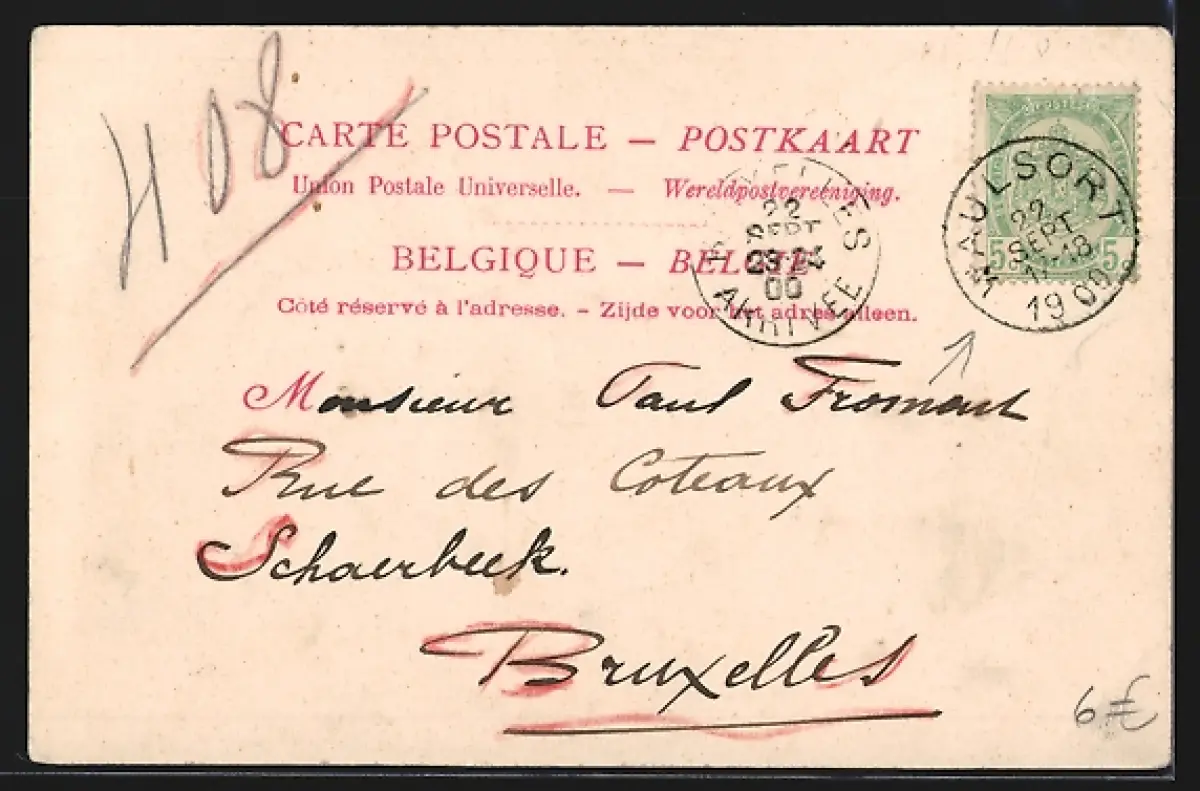 H 08
CARTE POSTALE — POSTKAART
Union Postale Universelle. — Wereldpostvereeniging.
BELGIQUE — BELGIË
Côté réservé à l'adresse. – Zijde voor het adres alleen.
22
SEPT
00
ARRIVEE
MAULSORT
22
SEPT
18
1900
5c 5c
Monsieur Paul Fromont
Rue des Coteaux
Schaerbeek.
Bruxelles
6 €